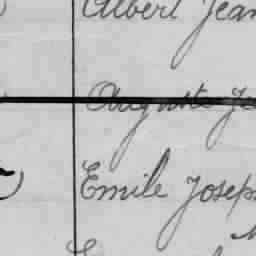 Albert Jean
Auguste
Emile Joseph